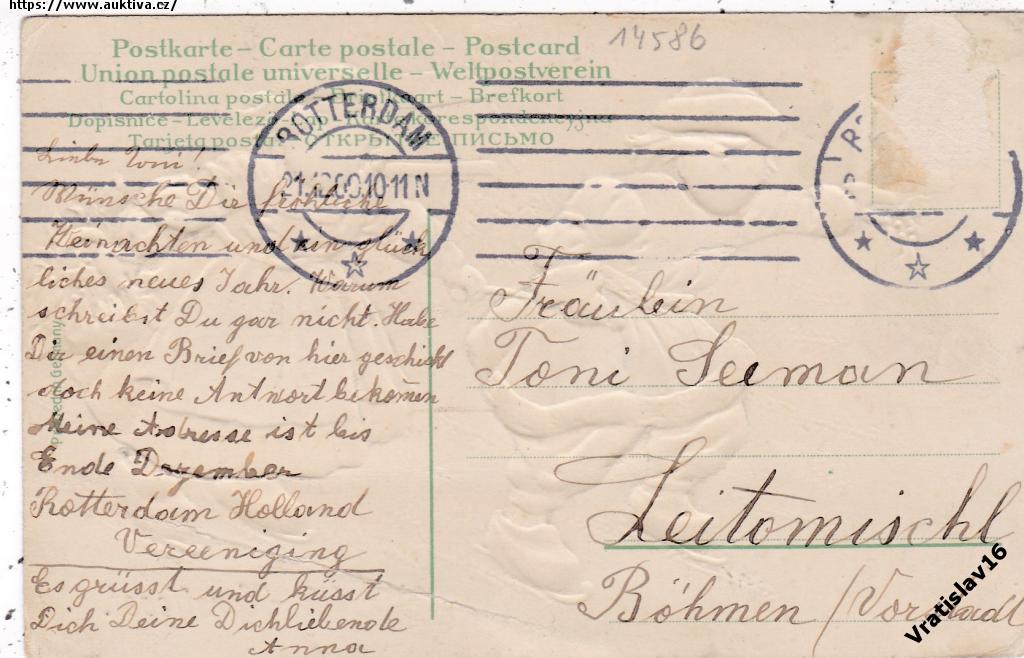 https://www.auktiva.cz/
14586
Postkarte – Carte postale – Postcard
Union postale universelle – Weltpostverein
Cartolina postale Briefkaart – Brefkort
Dopisnice – Levelező
Tarjeta postal ОТКРЫТОЕ ПИСЬМО
ROTTERDAM
10-11 N
Liebe Toni!
Wünsche Dir fröhliche
Weinachten und ein glück
liches neues Jahr. Warum
schreibst Du gar nicht. Habe
Dir einen Brief von hier geschickt
doch keine Antwort bekomen
Meine Adresse ist bis
Ende Dezember
Rotterdam Holland
Vereeniging
Es grüsst und küsst
Dich Deine Dichliebende
Anna
Fräulein
Toni Seeman
Leitomischl
Böhmen /Vorstadt
Vratislav16